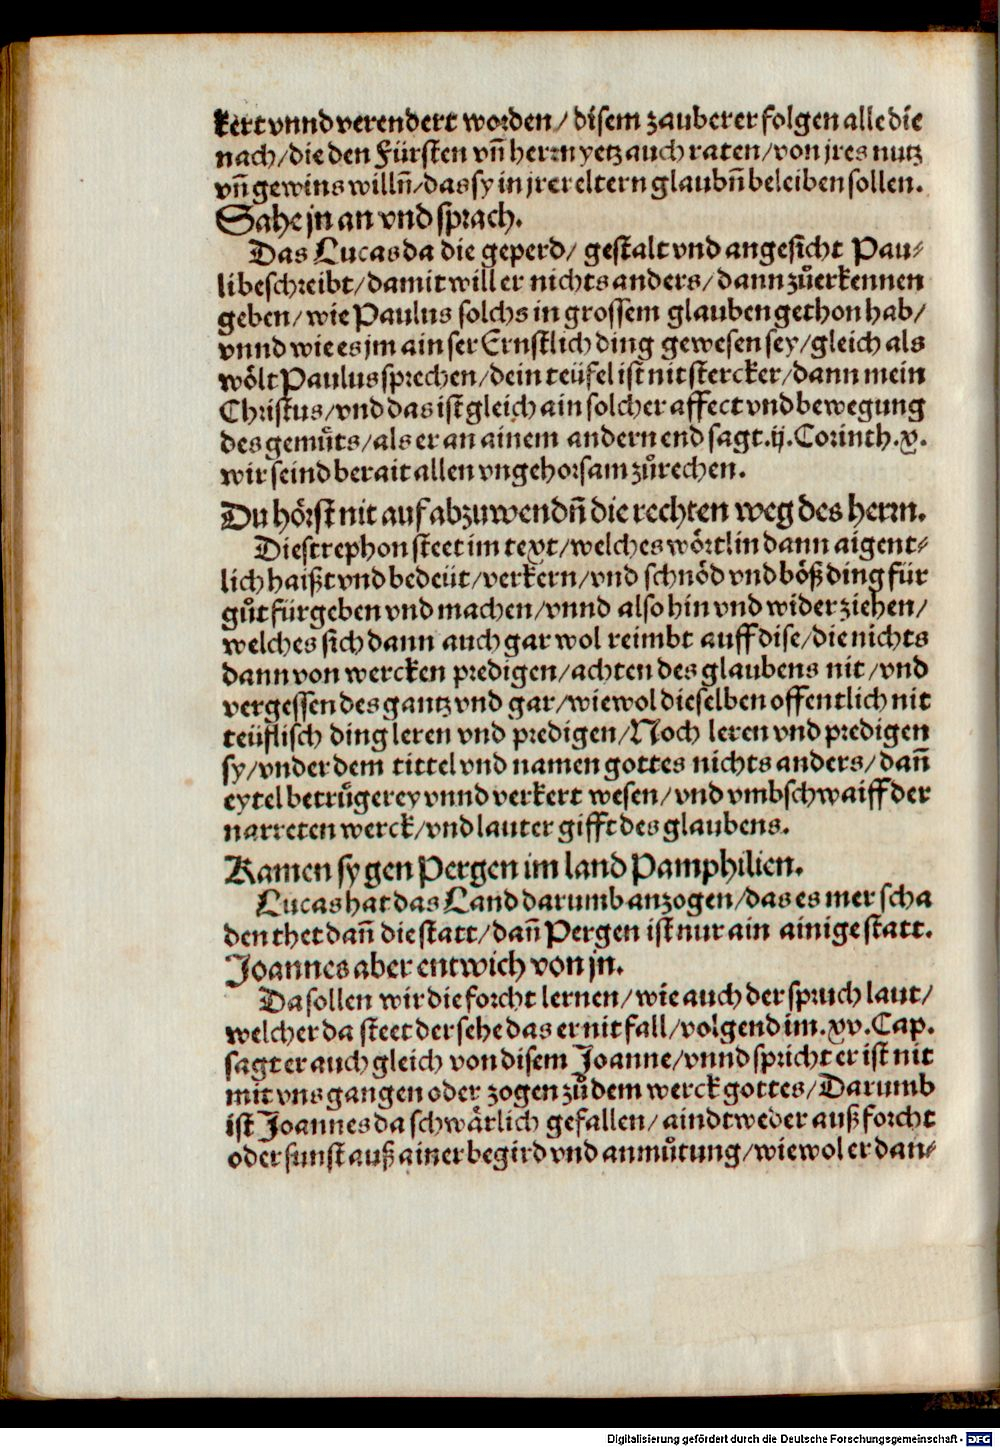 kert vnnd verendert worden/ disem zauberer folgen alle die
nach/die den Fürsten vn̄ herrn yetz auch raten/von jres nutz
vn̄ gewins willn̄/das sy in jrer eltern glaubn̄ beleiben sollen.
Sahe jn an vnd sprach.
Das Lucas da die geperd/ gestalt vnd angesicht Pau⸗
li beschreibt/damit will er nichts anders/dann zůerkennen
geben/wie Paulus solchs in grossem glauben gethon hab/
vnnd wie es jm ain ser Ernstlich ding gewesen sey/gleich als
wölt Paulus sprechen/dein teüfel ist nit stercker/dann mein
Christus/vnd das ist gleich ain solcher affect vnd bewegung
des gemüts/als er an ainem andern end sagt.ij.Corinth.x.
wir seind berait allen vngehorsam zůrechen.
Du hörst nit auf abzuwendn̄ die rechten weg des herrn.
Diestrephon steet im text/welches wörtlin dann aigent⸗
lich haißt vnd bedeüt/verkern/vnd schnöd vnd böß ding für
gůt fürgeben vnd machen/vnnd also hin vnd wider ziehen/
welches sich dann auch gar wol reimbt auff dise/die nichts
dann von wercken predigen/achten des glaubens nit/vnd
vergessen des gantz vnd gar/wiewol dieselben offentlich nit
teüflisch ding leren vnd predigen/Noch leren vnd predigen
sy/vnder dem tittel vnd namen gottes nichts anders/dan̄
eytel betrůgerey vnnd verkert wesen/vnd vmbschwaiff der
narreten werck/vnd lauter gifft des glaubens.
Kamen sy gen Pergen im land Pamphilien.
Lucas hat das Land darumb anzogen/das es mer scha
den thet dan̄ die statt/dan̄ Pergen ist nur ain ainige statt.
Joannes aber entwich von jn.
Da sollen wir die forcht lernen/wie auch der spruch laut/
welcher da steet der sehe das er nit fall/volgend im.xv.Cap.
sagt er auch gleich von disem Joanne/vnnd spricht er ist nit
mit vns gangen oder zogen zů dem werck gottes/Darumb
ist Joannes da schwärlich gefallen/aindtweder auß forcht
oder sunst auß ainer begird vnd anmůtung/wiewol er dan⸗
Digitalisierung gefördert durch die Deutsche Forschungsgemeinschaft - DFG